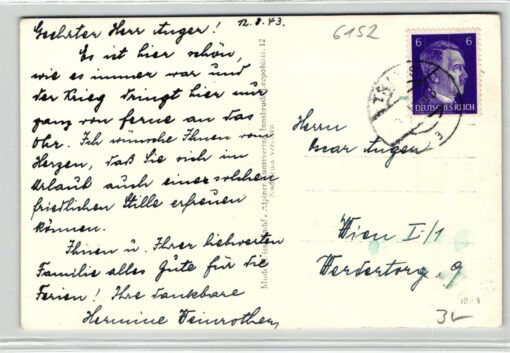 12.8.43.
Geehrter Herr Auger!
Es ist hier schön,
wie es immer war und
der Krieg dringt hier nur
ganz von ferne an das
Ohr. Ich wünsche Ihnen vom
Herzen, daß Sie sich im
Urlaub auch einer solchen
friedlichen Stille erfreuen
können.
Ihnen u. Ihrer liebwerten
Familie alles Gute für die
Ferien! Ihre dankbare
Hermine
6152
6 6
DEUTSCHES REICH
Alpiner Kunstverlag, Innsbruck, 12
Herrn
Oscar Auger
Wien I/1
Werdertorg. 9